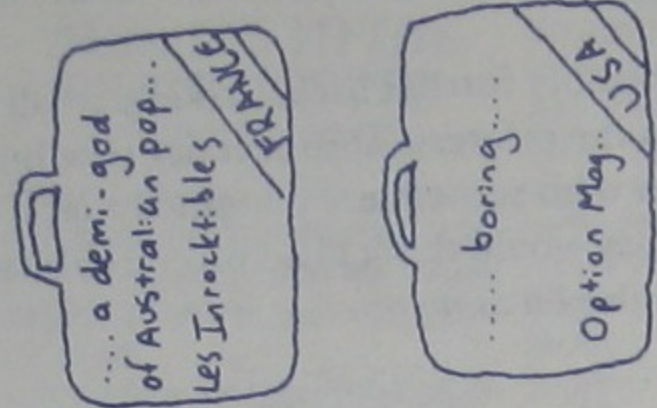 .... a demi-god
of Australian pop...
Les Inrocktibles
FRANCE
....... boring.....
Option Mag..
USA